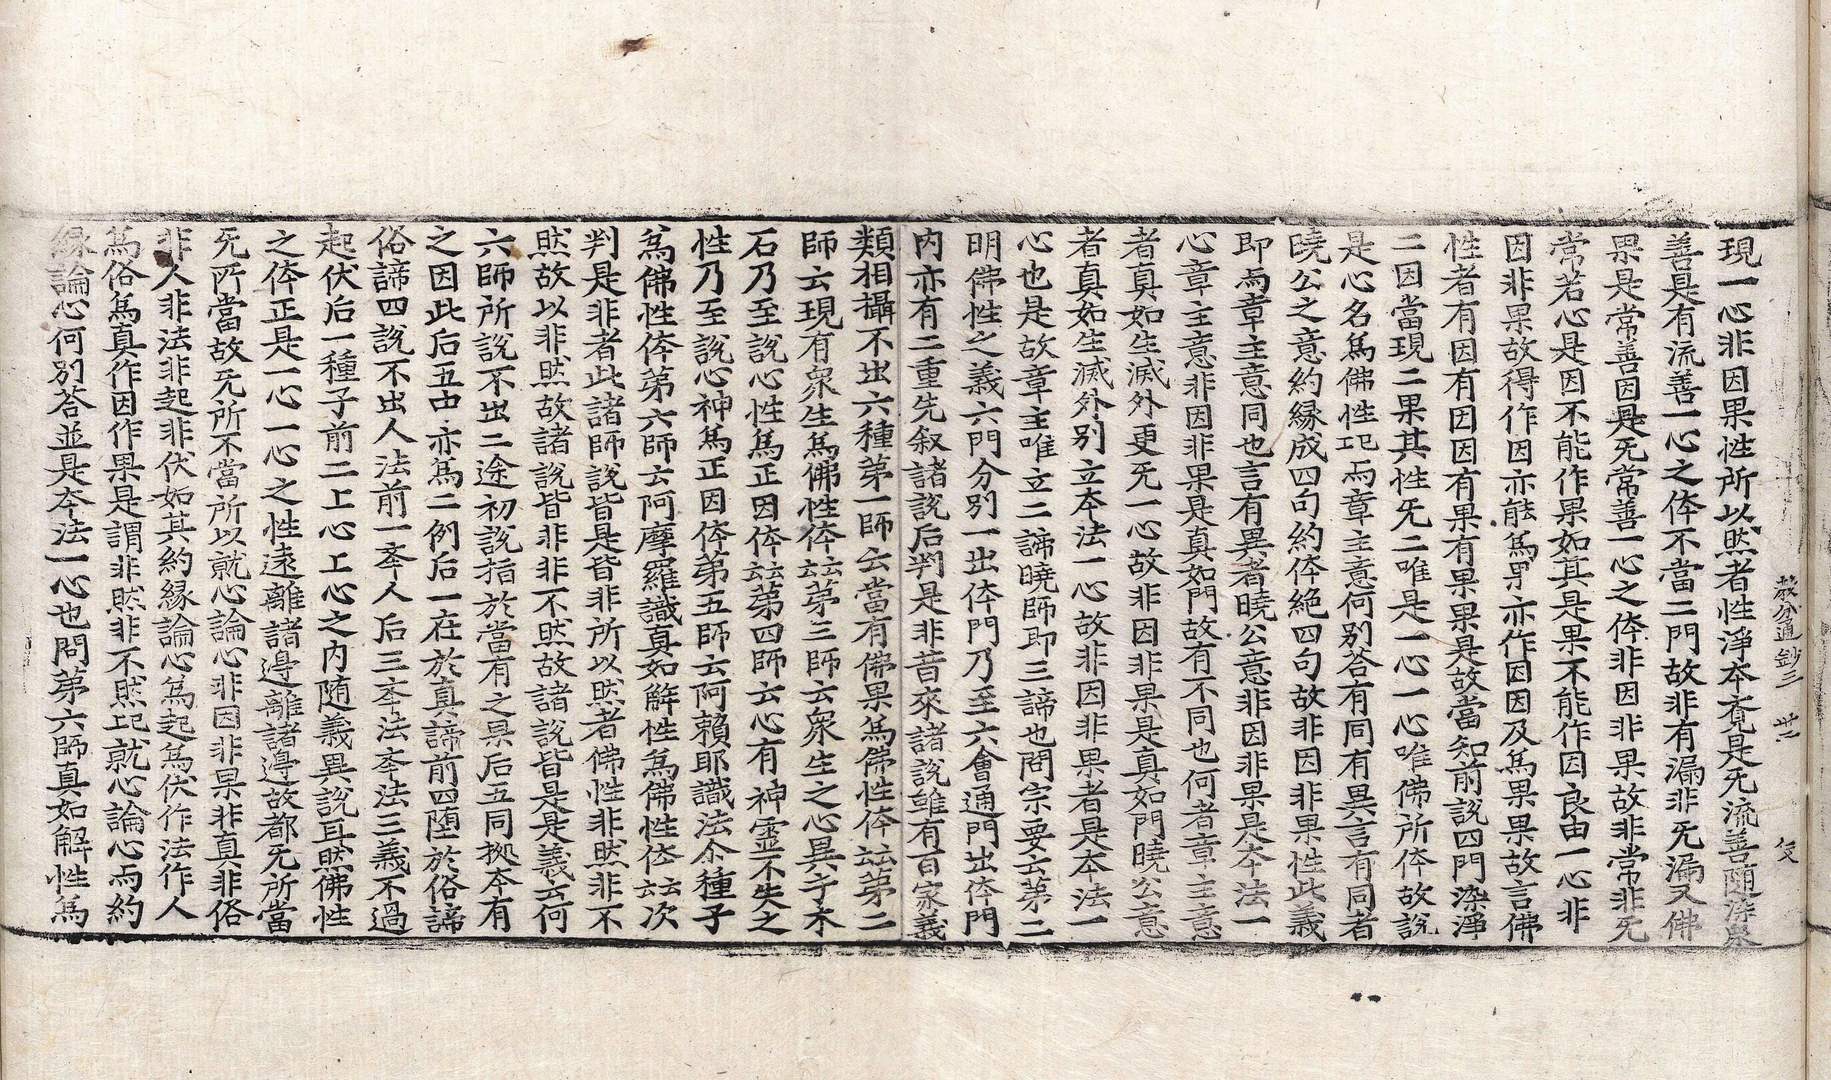 教分通鈔三 卅二 文
現一心非因果性所以然者性淨本覺是旡流善随染衆
善是有流善一心之体不當二門故非有漏非旡漏又佛
果是常善因是旡常善一心之体非因非果故非常非旡
常若心是因不能作果如其是果不能作因良由一心非
因非果故得作因亦能爲果亦作因因及爲果果故言佛
性者有因有因因有果有果果是故當知前說四門染淨
二因當現二果其性旡二唯是一心一心唯佛所体故說
是心名爲佛性耶問章主意何別答有同有異言有同者
曉公之意約緣成四句約体絶四句故非因非果性此義
即當章主意同也言有異者曉公意非因非果是本法一
心章主意非因非果是真如門故有不同也何者章主意
者真如生滅外更旡一心故非因非果是真如門曉公意
者真如生滅外別立本法一心故非因非果者是本法一
心也是故章主唯立二諦曉師即三諦也問宗要云第二
明佛性之義六門分別一出体門乃至六會通門出体門
内亦有二重先叙諸說后判是非昔來諸說雖有百家義
類相攝不出六種第一師云當有佛果爲佛性体云云第二
師云現有衆生爲佛性体云云第三師云衆生之心異乎木
石乃至說心性爲正因体云云第四師云心有神靈不失之
性乃至說心神爲正因体第五師云阿賴耶識法尒種子
爲佛性体第六師云阿摩羅識真如解性爲佛性体云云次
判是非者此諸師說皆是皆非所以然者佛性非然非不
然故以非然故諸說皆非非不然故諸說皆是是義云何
六師所說不出二途初說指於當有之果后五同拠本有
之因此后五中亦爲二例后一在於真諦前四堕於俗諦
俗諦四說不出人法前一㪯人后三㪯法㪯法三義不過
起伏后一種子前二上心上心之内随義異說耳然佛性
之体正是一心一心之性遠離諸邊離諸邊故都旡所當
旡所當故旡所不當所以就心論心非因非果非真非俗
非人非法非起非伏如其約緣論心爲起爲伏作法作人
爲俗爲真作因作果是謂非然非不然記就心論心而約
緣論心何別答並是本法一心也問第六師真如解性爲